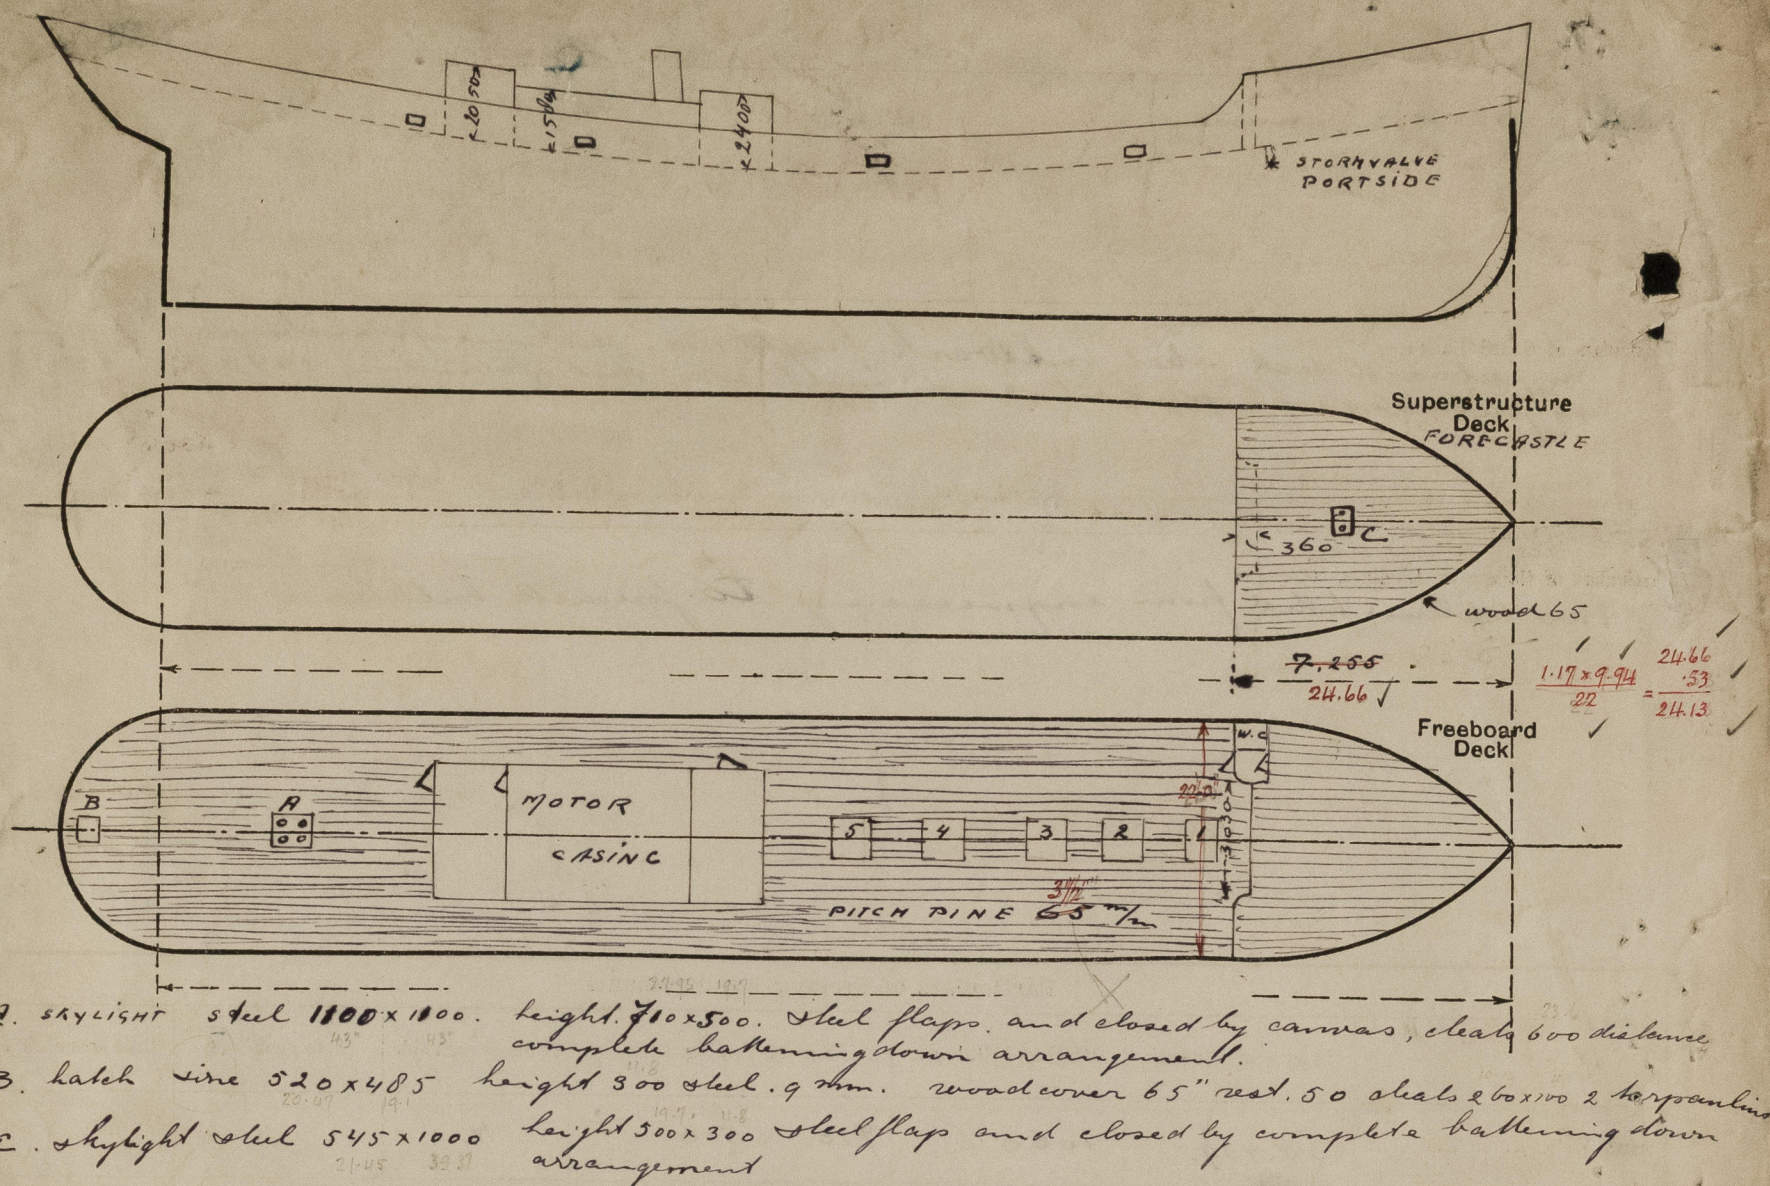 2050
150
2400
STORMVALVE
PORTSIDE
Superstructure
Deck
FORECASTLE
C
360
wood 65
7.255
24.66 ✓
1.17 x 9.94
22
=
24.66
.53
24.13
Freeboard
Deck
W.C
B
A
MOTOR
CASING
5 4 3 2 1
22.0"
3030
3 1/2"
PITCH PINE 65 m/m
A. SKYLIGHT steel 1100 x 1100. height. 710 x 500. steel flaps. and closed by canvas, cleats 600 distance
43" 43"
complete battening down arrangement.
B. hatch size 520 x 485 height 300 steel. 9 mm. wood cover 65" rest. 50 cleats 260 x 100 2 terpaulins
20.47 19.1 11.8
C. skylight steel 545 x 1000 height 500 x 300 steel flap and closed by complete battening down
21.45 39.37 19.7 11.8
arrangement